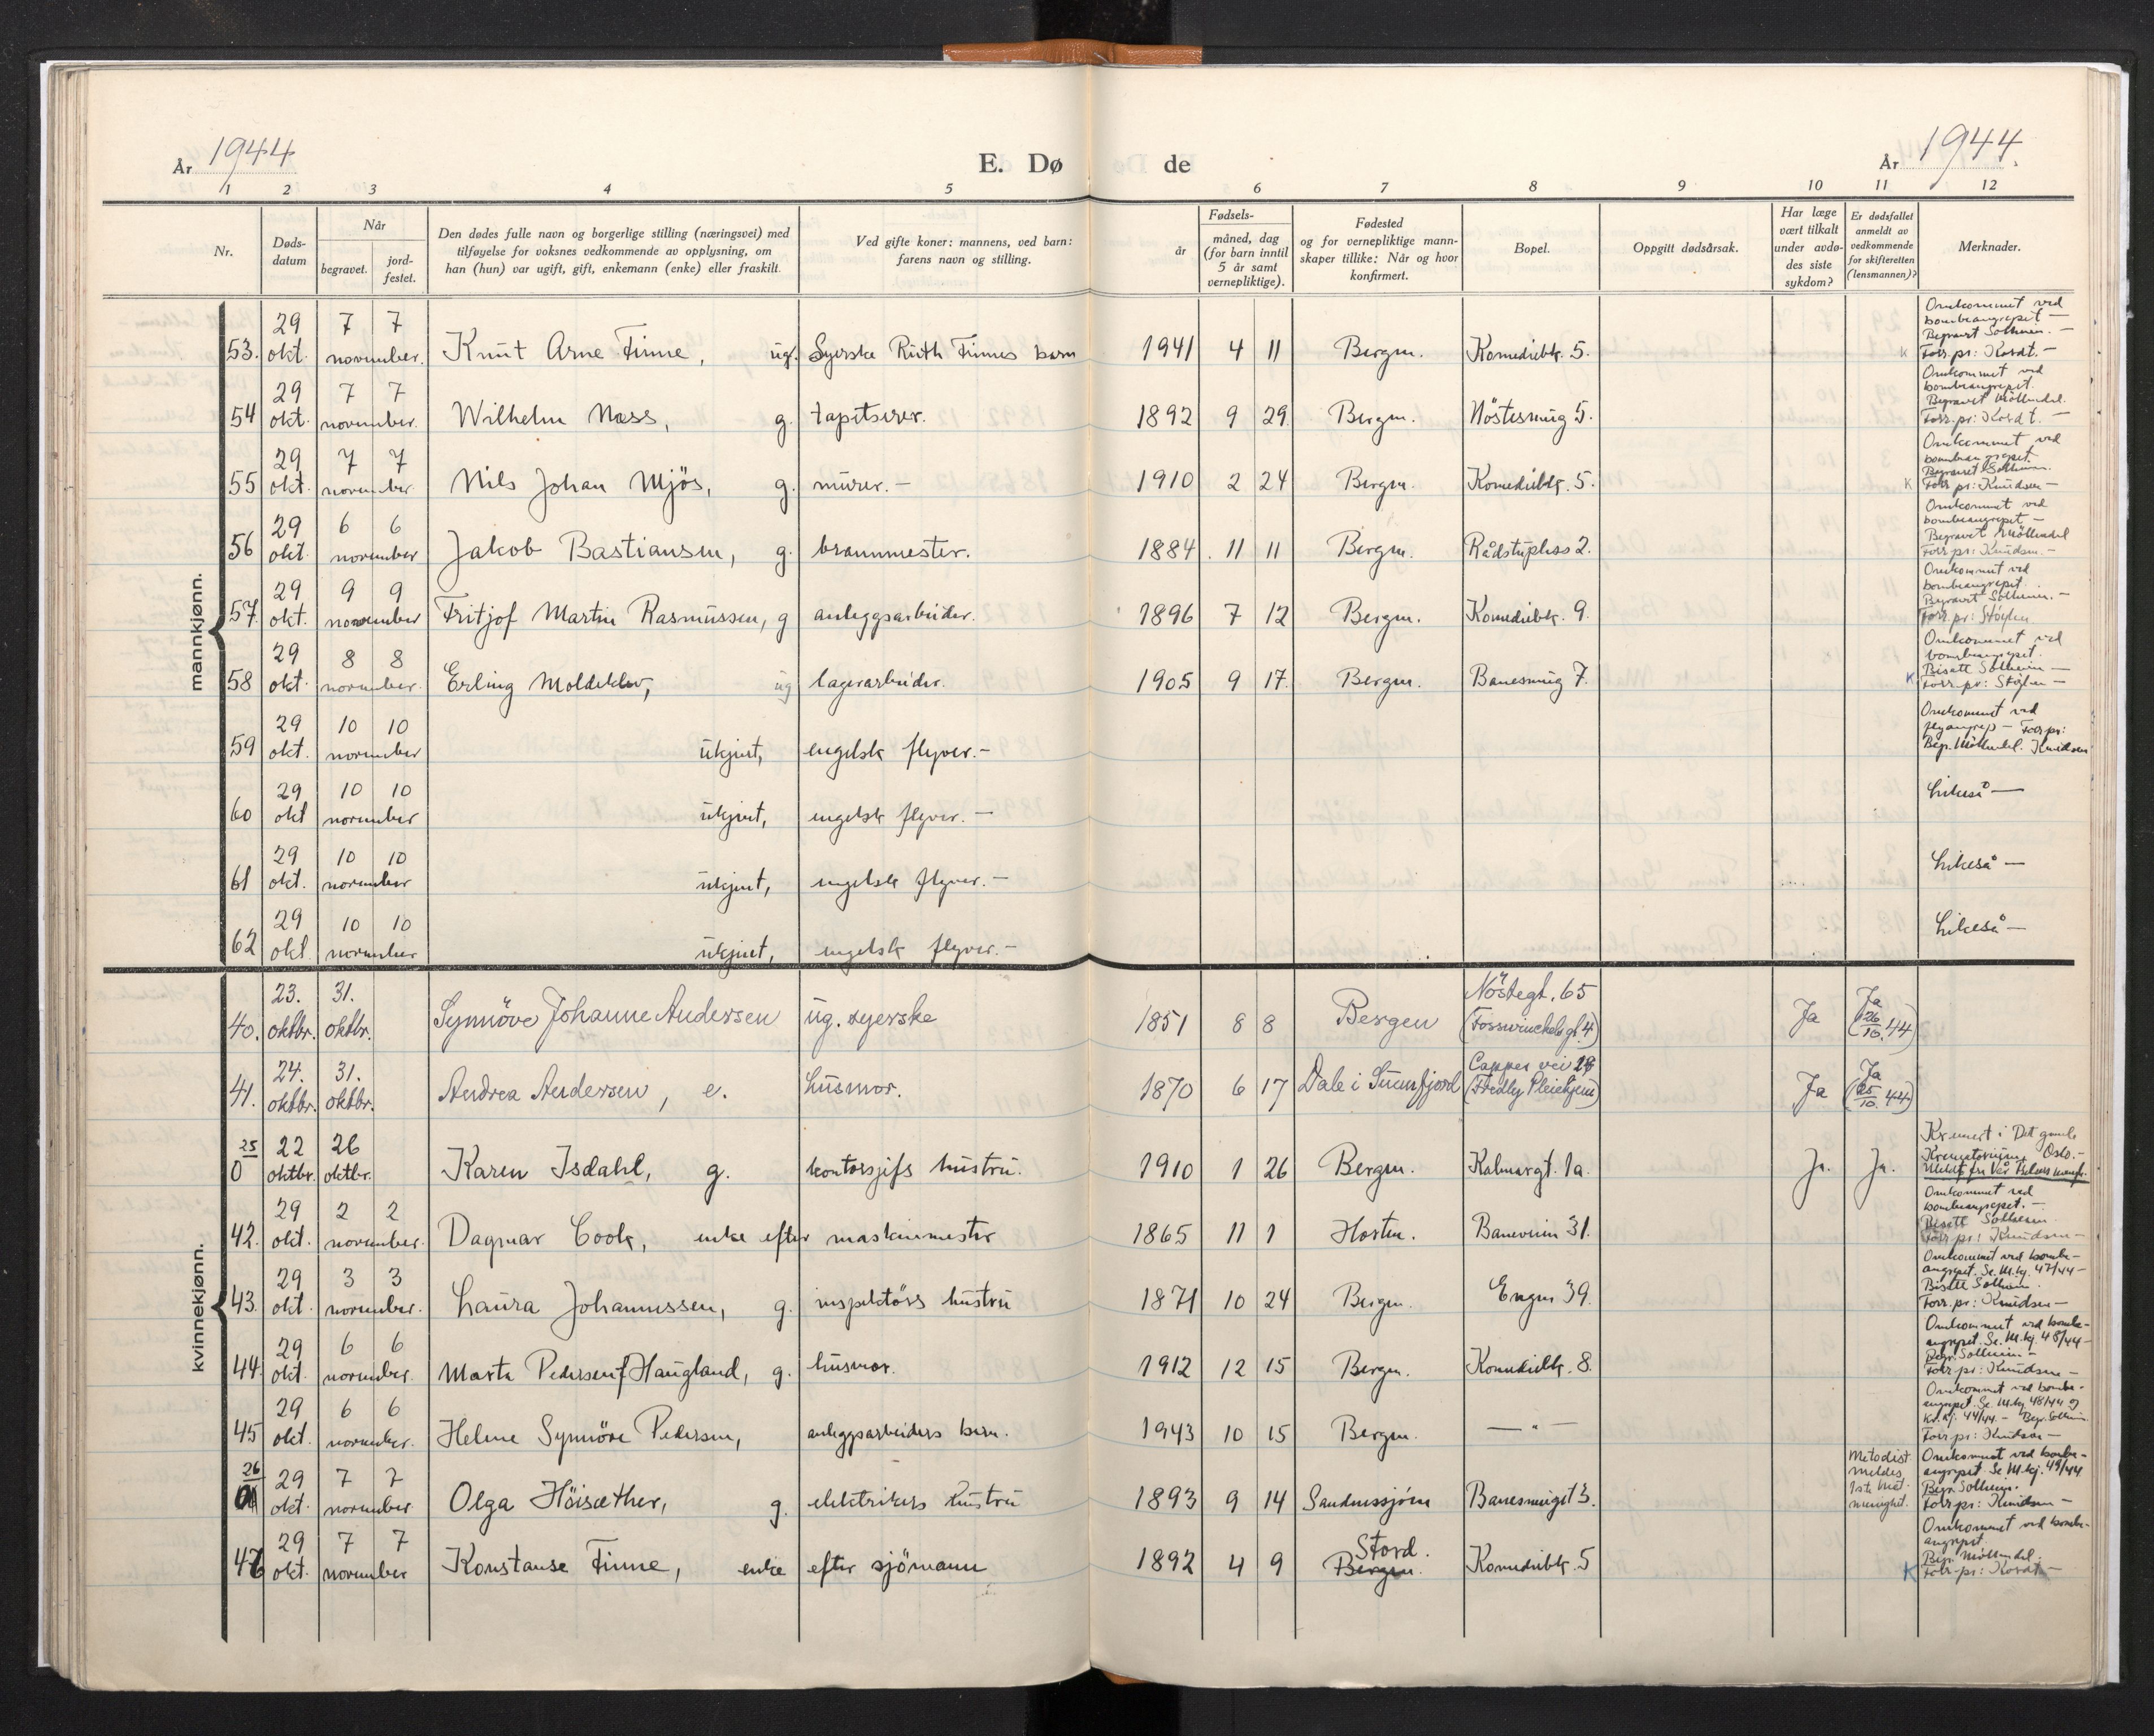 År 1944
E. Dø de
År 1944.
1 2 3 4 5 6 7 8 9 10 11 12
Nr.
Døds-
datum
Når
begravet.
jord-
festet.
Den dødes fulle navn og borgerlige stilling (næringsvei) med
tilføyelse for voksnes vedkommende av opplysning, om
han (hun) var ugift, gift, enkemann (enke) eller fraskilt.
Ved gifte koner: mannens, ved barn:
farens navn og stilling.
Fødsels-
år
måned, dag
(for barn inntil
5 år samt
vernepliktige).
Fødested
og for vernepliktige mann-
skaper tillike: Når og hvor
konfirmert.
Bopel.
Oppgitt dødsårsak.
Har læge
vært tilkalt
under avdø-
des siste
sykdom?
Er dødsfallet
anmeldt av
vedkommende
for skifteretten
(lensmannen)?
Merknader.
mankjønn.
53. 29 okt. 7 7 november. Knut Arne Finne, ug. Syerske Ruth Finnes barn 1941 4 11 Bergen. Komediebk. 5.
Omkommet ved
bombeangrepet —
Begravet Solheim. —
Forr. pr: Kordt. —
54 29 okt. 7 7 november. Wilhelm Næss, g. tapetserer. 1892 9 29 Bergen. Nöstesmug 5.
Omkommet ved
bombeangrepet.
Begravet Möllendal.
Forr. pr: Kordt. —
55 29 okt. 7 7 november. Nils Johan Mjös, g. murer. — 1910 2 24 Bergen. Komediebk. 5.
Omkommet ved
bombeangrepet.
Begravet Solheim.
K Forr. pr: Knudsen —
56 29 okt. 6 6 november Jakob Bastiansen, g. brannmester. 1884. 11 11 Bergen. Rådstuplass 2.
Omkommet ved
bombeangrepet —
Begravet Möllendal
Forr. pr: Knudsen. —
57. 29 okt. 9 9 november Fritjof Martin Rasmussen, g anleggsarbeider. 1896 7 12 Bergen. Komediebk. 9.
Omkommet ved
bombeangrepet.
Begravet Solheim. —
Forr. pr: Støylen
58 29 okt. 8 8 november. Erling Moldeklev, ug lagerarbeider. 1905 9 17. Bergen. Banesmug 7.
Omkommet ved
bombeangrepet.
Bisatt Solheim —
K Forr. pr: Støylen —
59 29 okt. 10 10 november ukjent, engelsk flyver. —
Omkommet ved
flyangrep — Forr pr:
Begr. Möllendal. Knudsen
60 29 okt 10 10 november ukjent, engelsk flyver. — Likeså —
61 29 okt. 10 10 november ukjent, engelsk flyver. — Likeså —
62 29 okt 10 10 november ukjent, engelsk flyver. — Likeså —
kvinnekjønn.
40. 23. oktbr. 31. oktbr. Synnöve Johanne Andersen ug. syerske 1851 8 8 Bergen Nöstegt. 65
(Fosswinckelsgt. 4) Ja Ja (26/10. 44)
41. 24. oktbr. 31. oktbr. Andrea Andersen, e. husmor. 1870 6 17 Dale i Sunnfjord Cappes vei 28
(Fredly Pleiehjem) Ja Ja (25/10. 44)
25/0 22 oktbr. 26 oktbr. Karen Isdahl, g. kontorsjefs hustru. 1910 1 26 Bergen. Kalmargt. 1a. Ja. Ja.
Kremert i Det gamle
Krematorium, Oslo. —
Meldt fra Vår Frelsers menigh.
42. 29 okt. 2 2 november. Dagmar Cook, enke efter maskinmester 1865 11 1 Horten. Baneveien 31.
Omkommet ved
bombeangrepet. —
Bisatt Solheim
Forr pr: Knudsen —
43. 29 okt. 3 3 november. Laura Johannessen, g. inspektörs hustru 1871 10 24 Bergen. Engen 39.
Omkommet ved bombe-
angrepet. Se. M.kj. 47/44 —
Bisatt Solheim.
Forr. pr: Knudsen —
44. 29 okt. 6 6 november. Marta Pedersen f Haugland, g. husmor. 1912 12 15 Bergen. Komediebk. 8.
Omkommet ved bombe-
angrepet. Se. M.kj. 48/44 —
Begr. Solheim —
Forr pr: Knudsen —
45 29 okt. 6 6 november. Helene Synnöve Pedersen, anleggsarbeiders barn. 1943 10 15 Bergen. — " —
Omkommet ved bombe-
angrepet. Se. M.kj. 48/44 og
Kv.kj. 44/44. — Begr. Solheim.
Forr pr: Knudsen —
26 29 okt. 7 7 november Olga Höisæther, g. elektrikers hustru 1893 9 14 Sandnessjøen Banesmuget 3.
Metodist
meldes
1st. Met.
menighet.
Omkommet ved bombe-
angrepet Se M.kj. 49/44
Begr. Solheim.
Forr pr: Knudsen —
46 29 okt. 7 7 november Konstanse Finne, enke efter sjömann 1892 4 9 Stord.
Bergen. Komediebk. 5
Omkommet ved bombe-
angrepet.
Begr. Möllendal.
K Forr. pr: Kordt —